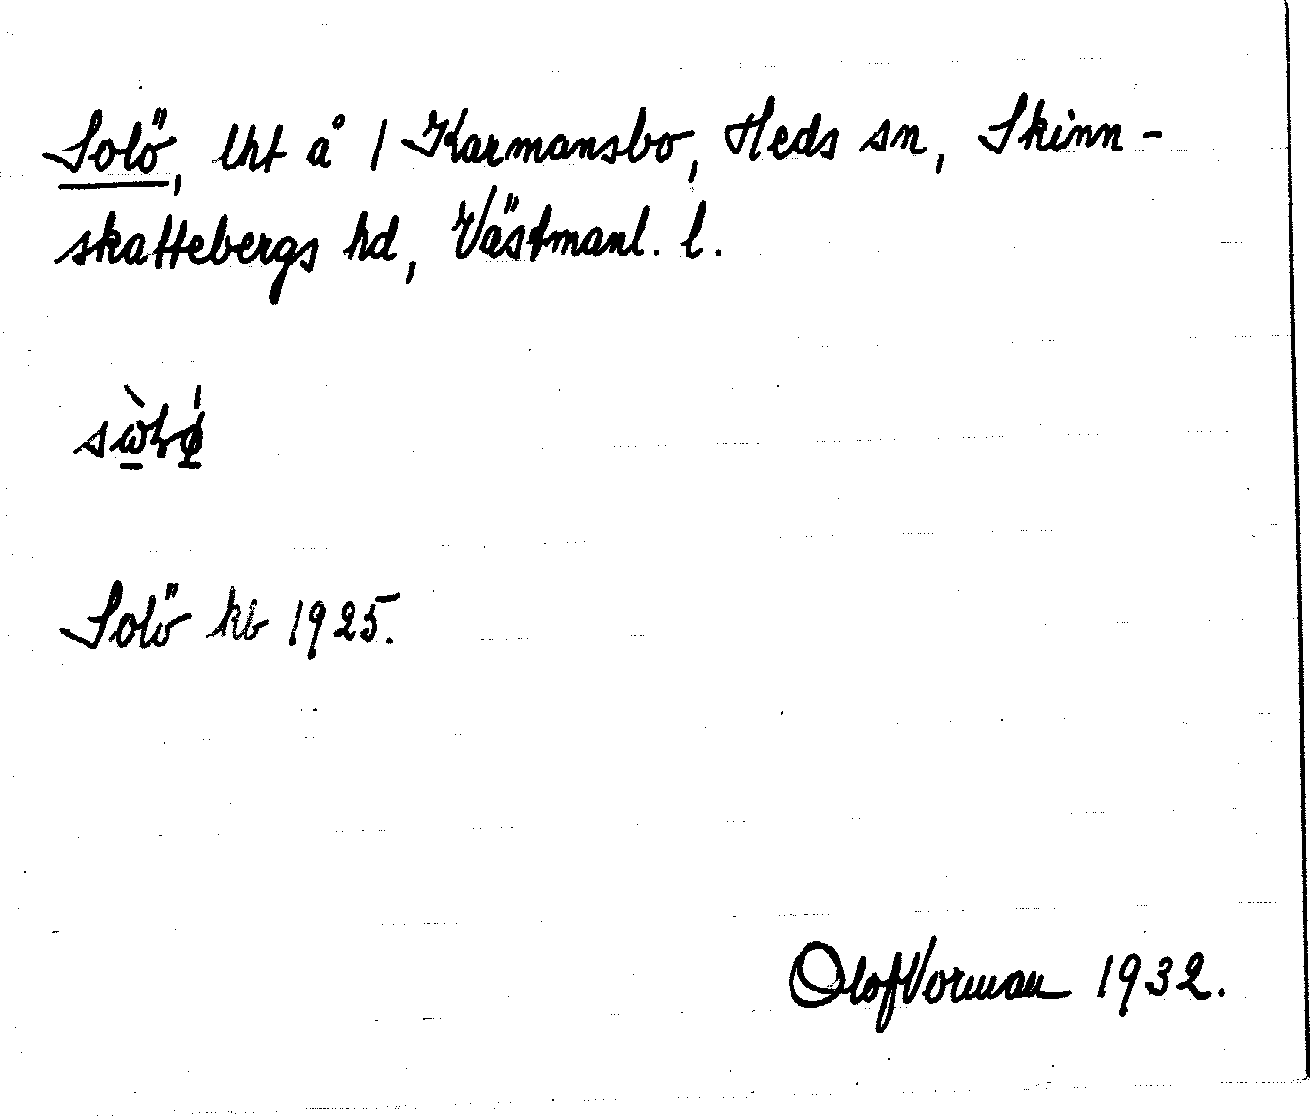 Solö, lht å 1 Karmansbo, Heds sn, Skinn-
skattebergs hd, Västmanl. l.
Solö kb 1925.
Olof Vorman 1932.